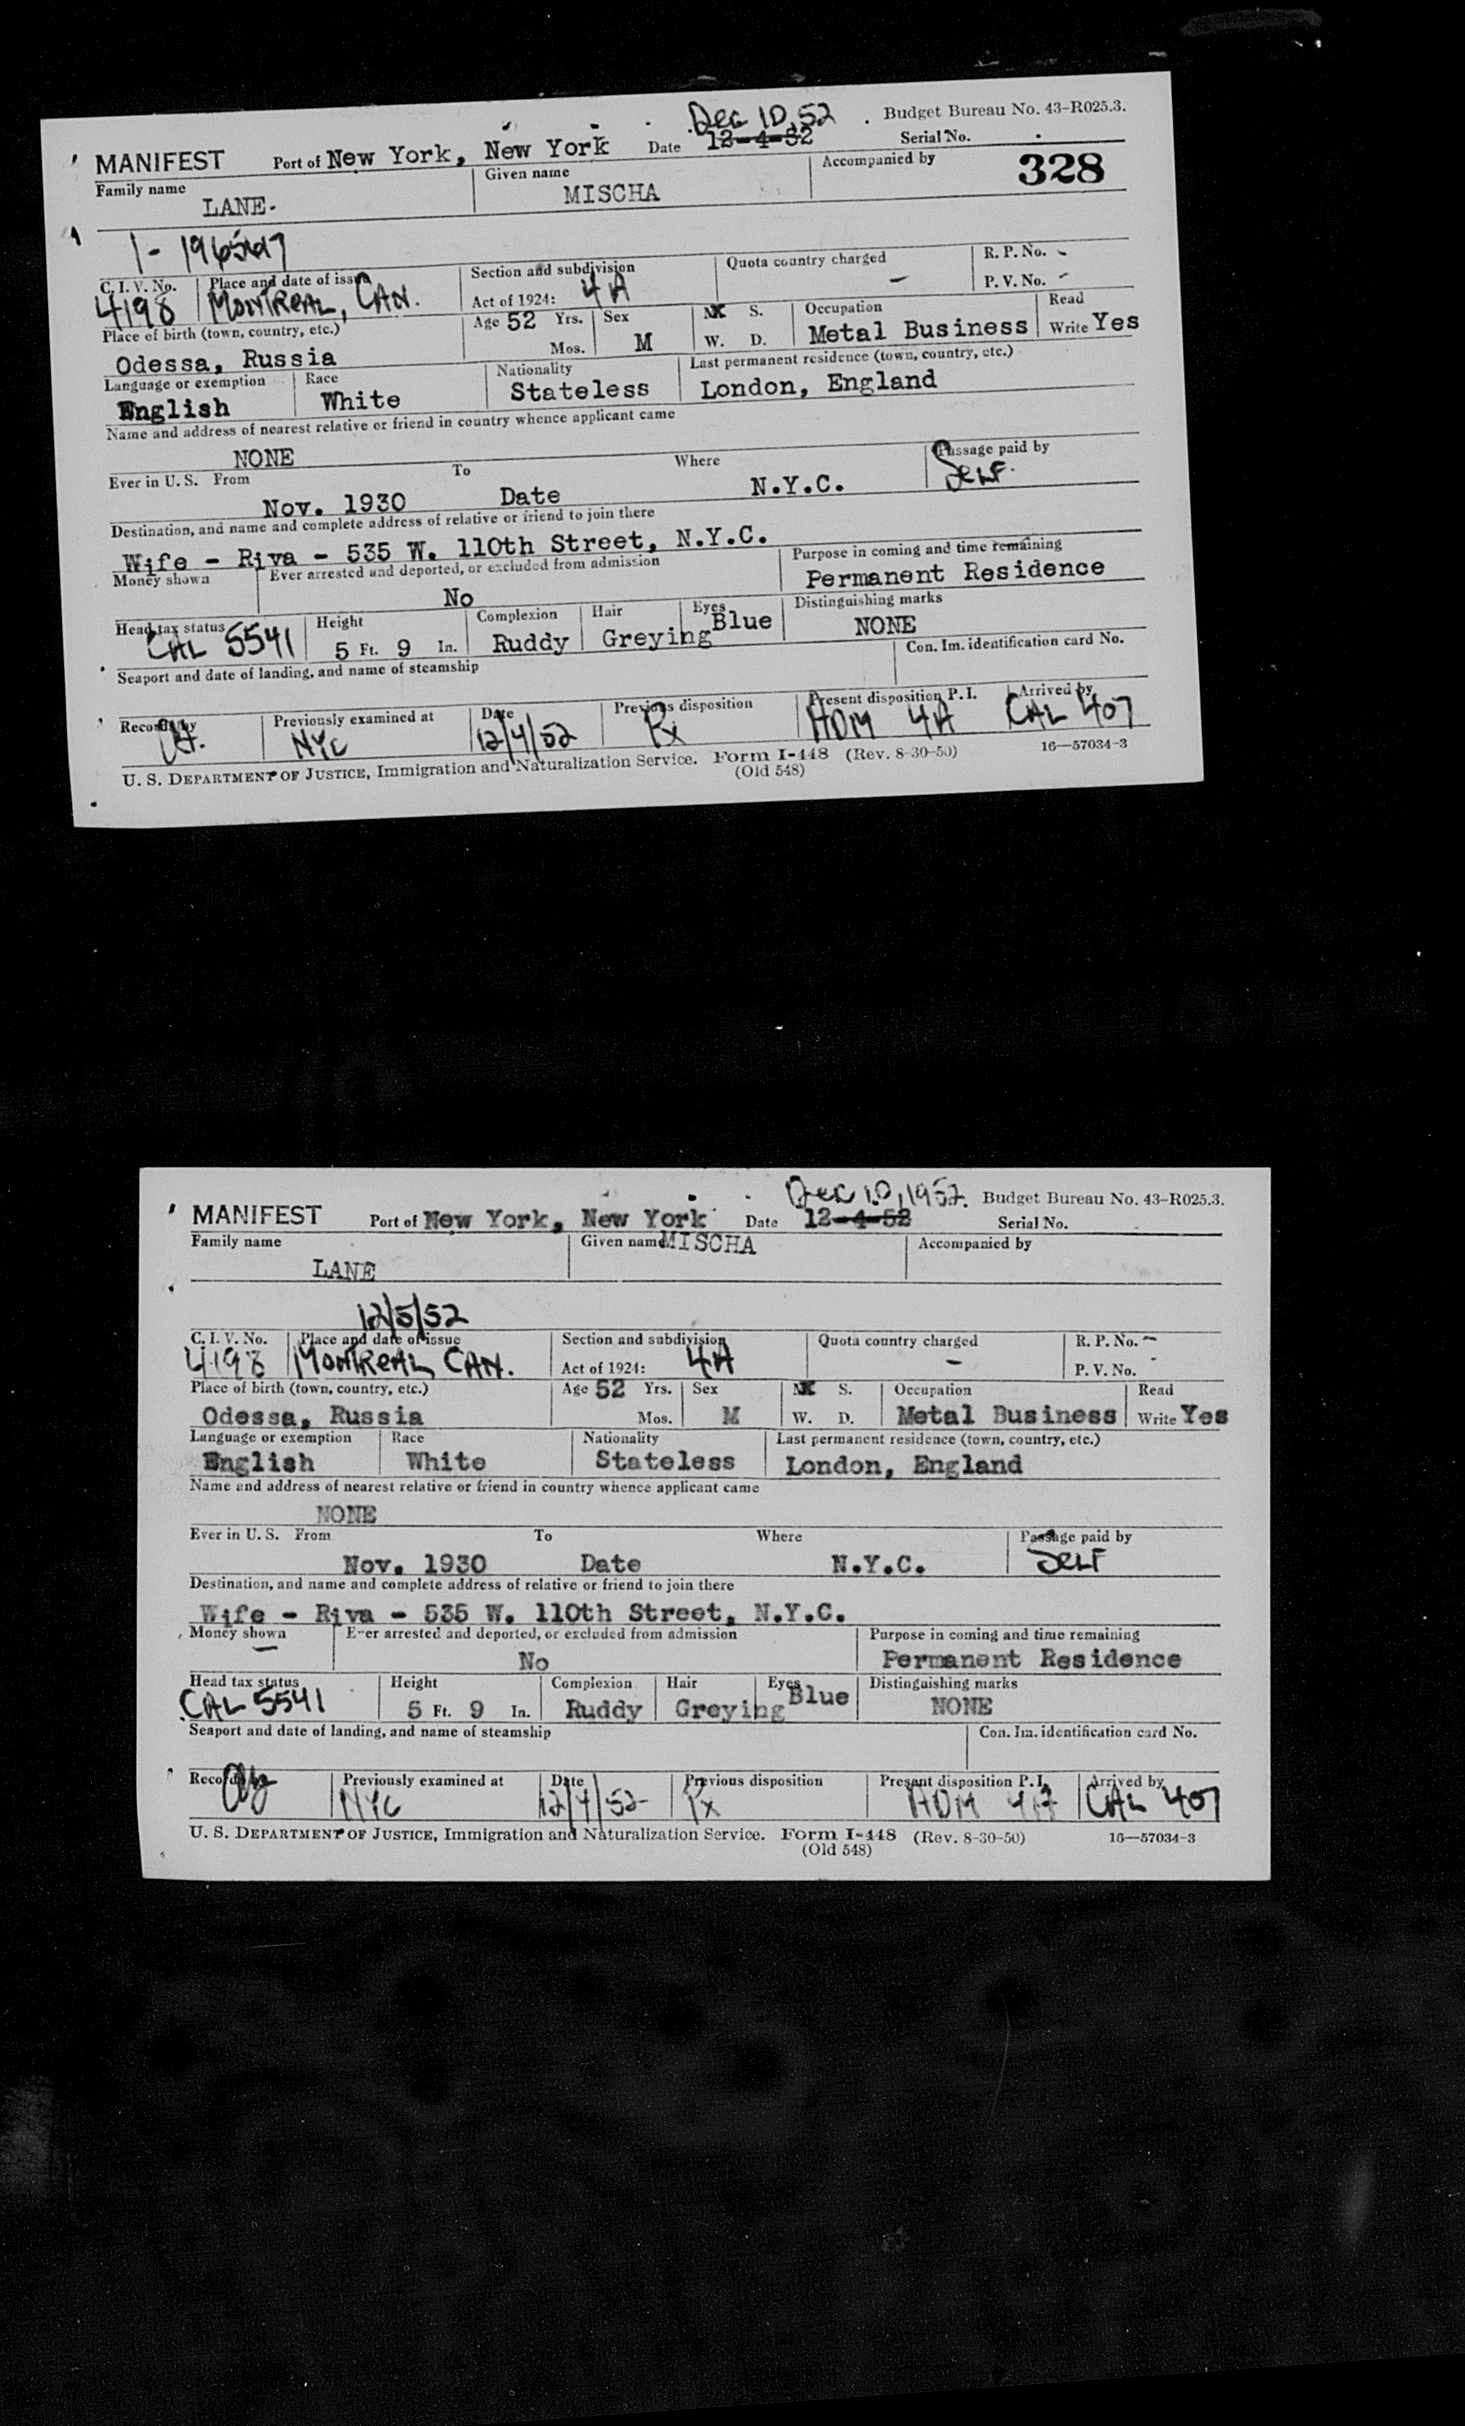 Dec 10, 52 Budget Bureau No. 43-R025.3.
MANIFEST Port of New York, New York Date 12-4-52 Serial No.
Family name Given name Accompanied by 328
LANE. MISCHA
1-
C. I. V. No. Place and date of issue Section and subdivision Quota country charged R. P. No. -
4198 MONTREAL, CAN. Act of 1924: 4A - P. V. No. -
Place of birth (town, country, etc.) Age 52 Yrs. Sex S. Occupation Read
Odessa, Russia Mos. M W. D. Metal Business Write Yes
Language or exemption Race Nationality Last permanent residence (town, country, etc.)
English White Stateless London, England
Name and address of nearest relative or friend in country whence applicant came
NONE
Ever in U. S. From To Where Passage paid by
Nov. 1930 Date N.Y.C. SELF.
Destination, and name and complete address of relative or friend to join there
Wife - Riva - 535 W. 110th Street, N.Y.C.
Money shown Ever arrested and deported, or excluded from admission Purpose in coming and time remaining
No Permanent Residence
Head tax status Height Complexion Hair Eyes Distinguishing marks
CAL 5541 5 Ft. 9 In. Ruddy Greying Blue NONE
Seaport and date of landing, and name of steamship Con. Im. identification card No.
Record by Previously examined at Date Previous disposition Present disposition P. I. Arrived by
NYC 12/4/52 Px ADM 4A CAL 407
U. S. DEPARTMENT OF JUSTICE, Immigration and Naturalization Service. Form I-448 (Rev. 8-30-50) 16—57034-3
(Old 548)
Dec 10, 1952. Budget Bureau No. 43-R025.3.
MANIFEST Port of New York, New York Date 12-4-52 Serial No.
Family name Given name MISCHA Accompanied by
LANE
12/5/52
C. I. V. No. Place and date of issue Section and subdivision Quota country charged R. P. No. -
4198 MONTREAL CAN. Act of 1924: 4A - P. V. No. -
Place of birth (town, country, etc.) Age 52 Yrs. Sex S. Occupation Read
Odessa, Russia Mos. M W. D. Metal Business Write Yes
Language or exemption Race Nationality Last permanent residence (town, country, etc.)
English White Stateless London, England
Name and address of nearest relative or friend in country whence applicant came
NONE
Ever in U. S. From To Where Passage paid by
Nov. 1930 Date N.Y.C. SELF
Destination, and name and complete address of relative or friend to join there
Wife - Riva - 535 W. 110th Street, N.Y.C.
Money shown Ever arrested and deported, or excluded from admission Purpose in coming and time remaining
- No Permanent Residence
Head tax status Height Complexion Hair Eyes Distinguishing marks
CAL 5541 5 Ft. 9 In. Ruddy Greying Blue NONE
Seaport and date of landing, and name of steamship Con. Im. identification card No.
Record by Previously examined at Date Previous disposition Present disposition P. I. Arrived by
NYC 12/4/52 Px ADM 4A CAL 407
U. S. DEPARTMENT OF JUSTICE, Immigration and Naturalization Service. Form I-448 (Rev. 8-30-50) 16—57034-3
(Old 548)